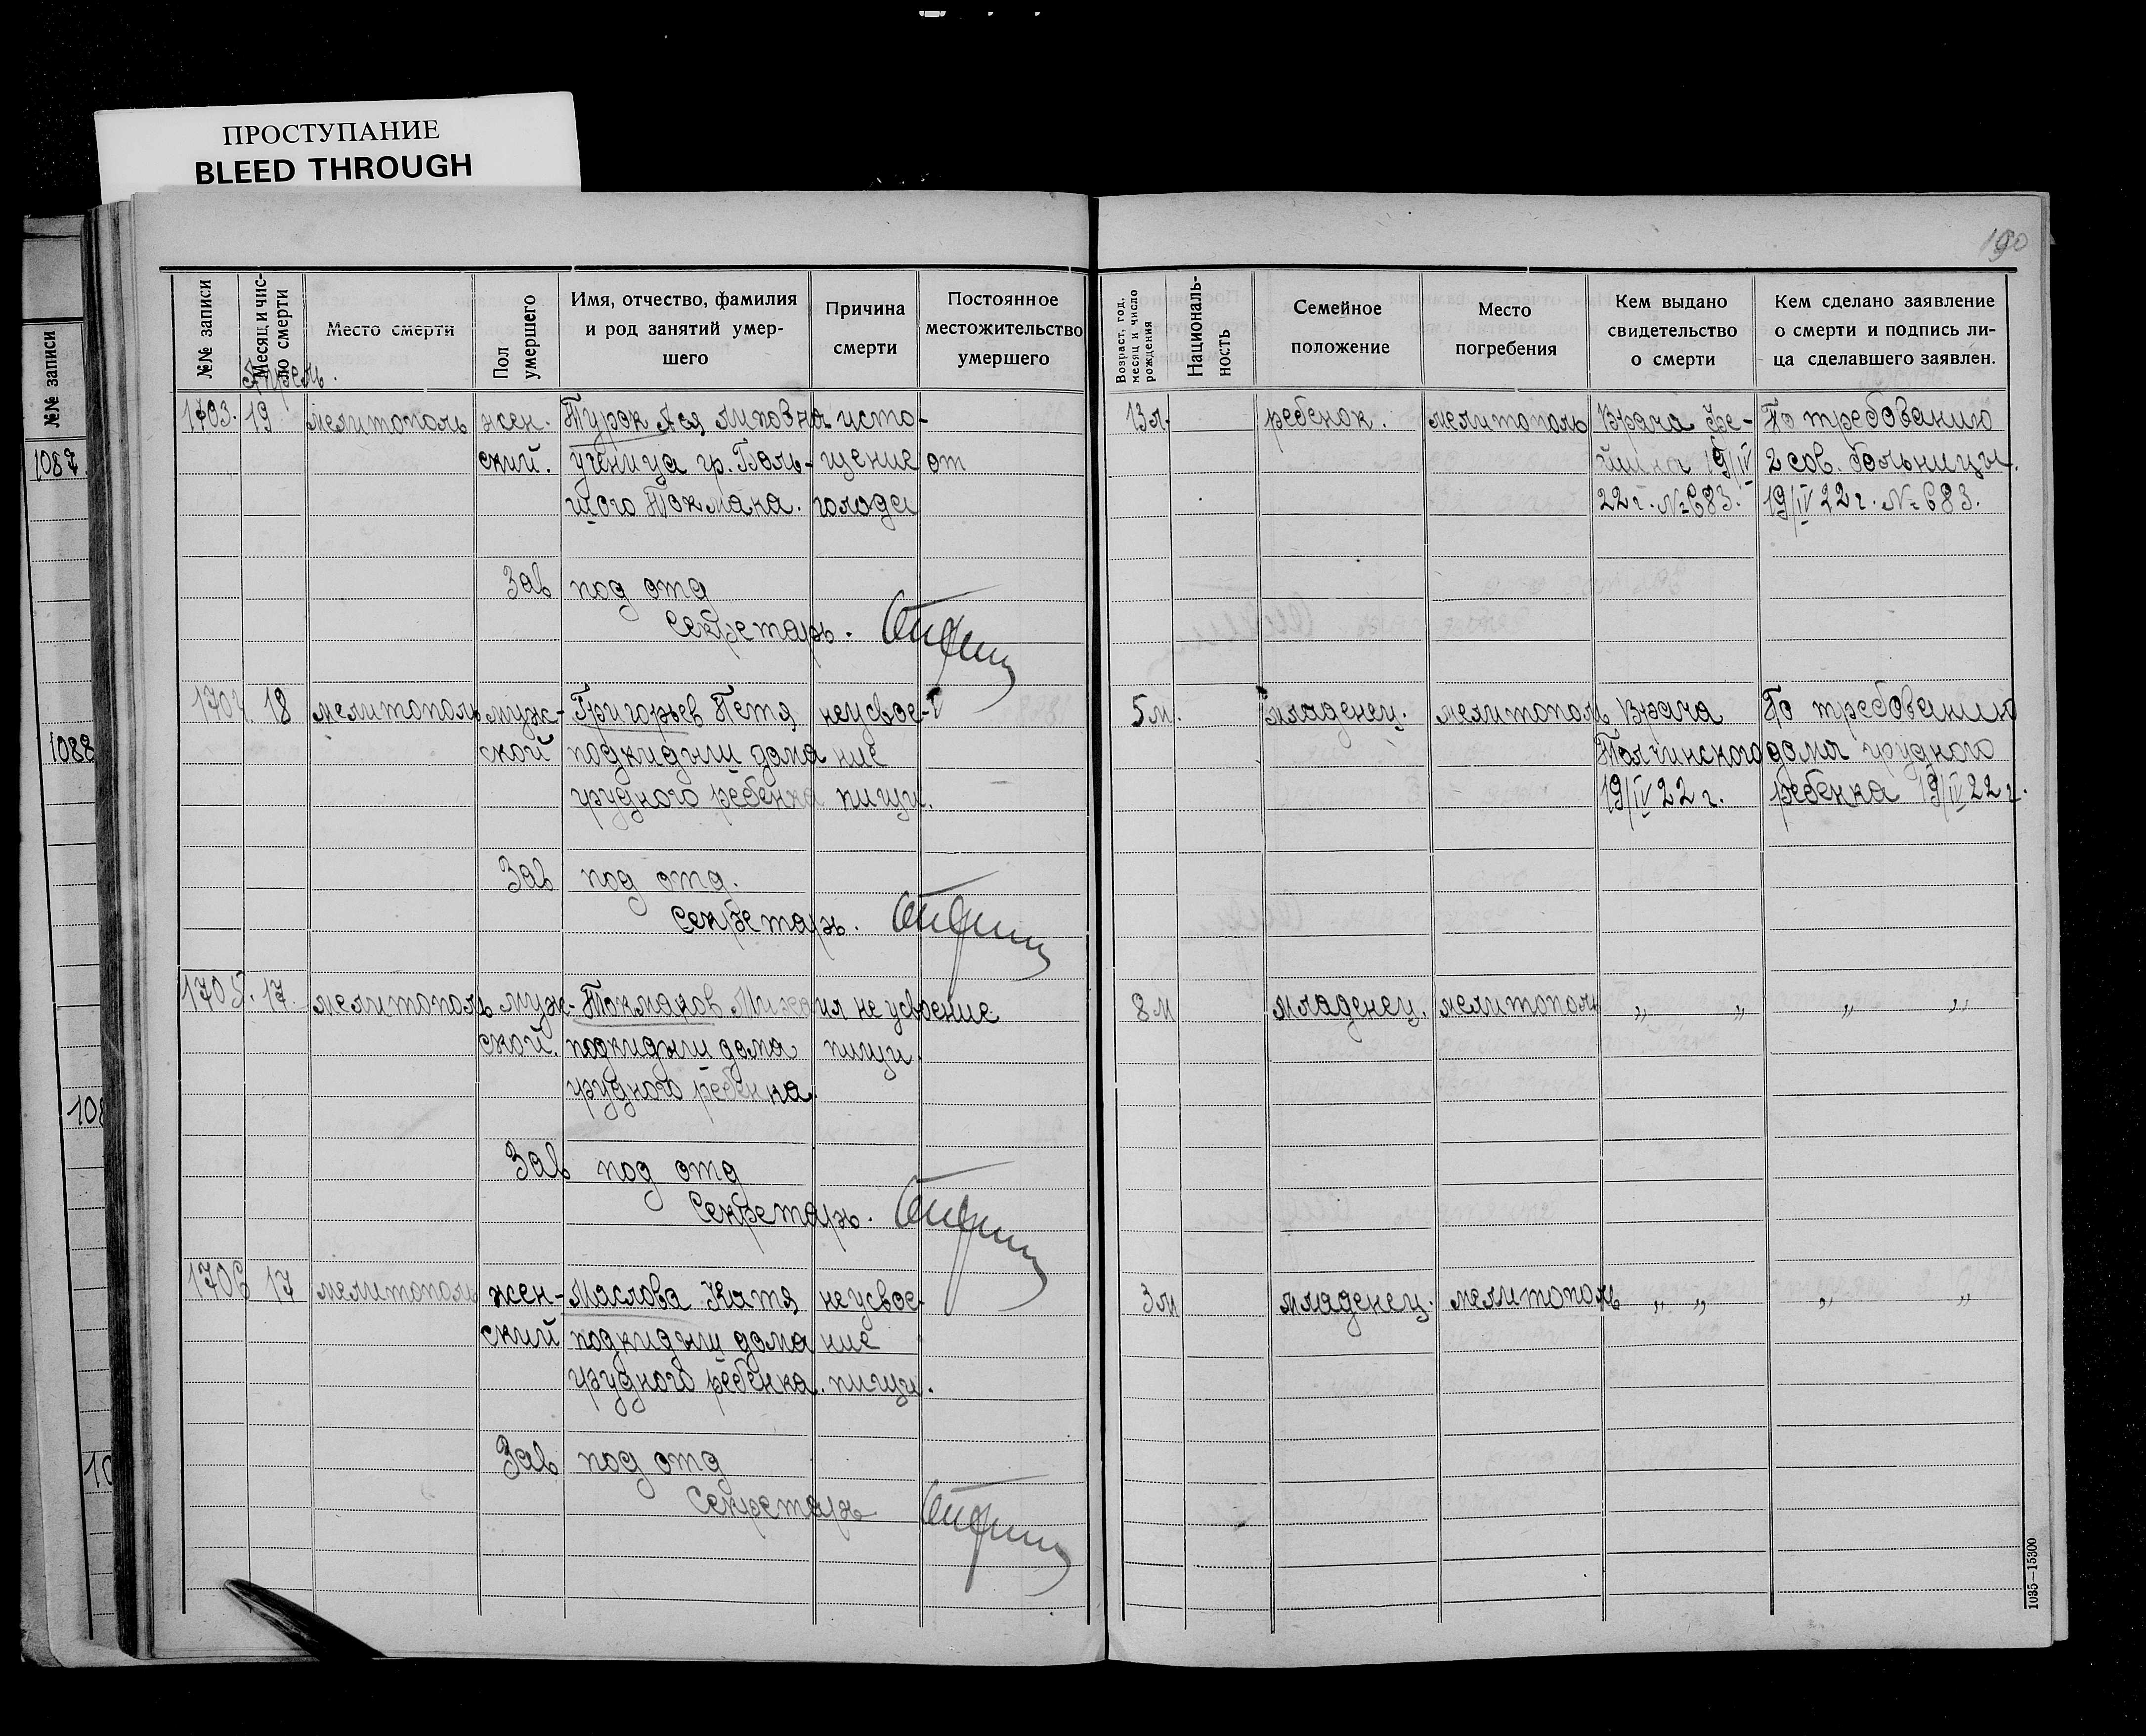 ПРОСТУПАНИЕ
BLEED THROUGH
190
№№ записи
1087.
1088
108
10
№№ записи
Месяц и чис-
ло смерти
Апрель.
Место смерти
Пол
умершего
Имя, отчество, фамилия
и род занятий умер-
шего
Причина
смерти
Постоянное
местожительство
умершего
Возраст, год,
месяц и число
рождения
Националь-
ность
Семейное
положение
Место
погребения
Кем выдано
свидетельство
о смерти
Кем сделано заявление
о смерти и подпись ли-
ца сделавшего заявлен.
1703. 19 мелитополь жен- Турок Ася исто- 13 л. ребенок. мелитополь Врача По требованию
ский. ученица гр. Боль- щение от 19/IV 2 сов. больницы.
шого Токмака. голода 22 г. № 683. 19/IV 22 г. № 683.
Зав под отд
Секретарь.
1704. 18 мелитополь муж- Григорьев Петя неусвое- 5 м. младенец. мелитополь Врача По требованию
ской подкидыш дома ние Толчинского дома грудного
грудного ребенка пищи. 19/IV 22 г. ребенка 19/IV 22 г.
Зав под отд.
Секретарь.
1705. 17. мелитополь муж- Токмаков Михаил не усвоение 8 м младенец. мелитополь „ „ „ „
ской. подкидыш дома пищи.
грудного ребенка.
Зав под отд
Секретарь.
1706 17 мелитополь жен- Маслова Катя неусвое- 3 м младенец. мелитополь „ „ „ „
ский подкидыш дома ние
грудного ребенка. пищи.
Зав под отд
Секретарь
1035—15300